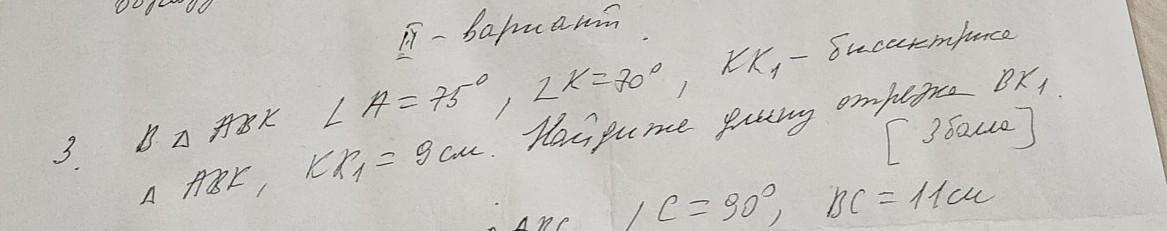 II - вариант.
3. В △ ABK ∠A = 75°, ∠K = 70°, KK₁ - биссиктриса
△ ABK, KK₁ = 9 см. Найдите длину отрезка BK₁.
[3 бала]
∠C = 90°, BC = 11 см